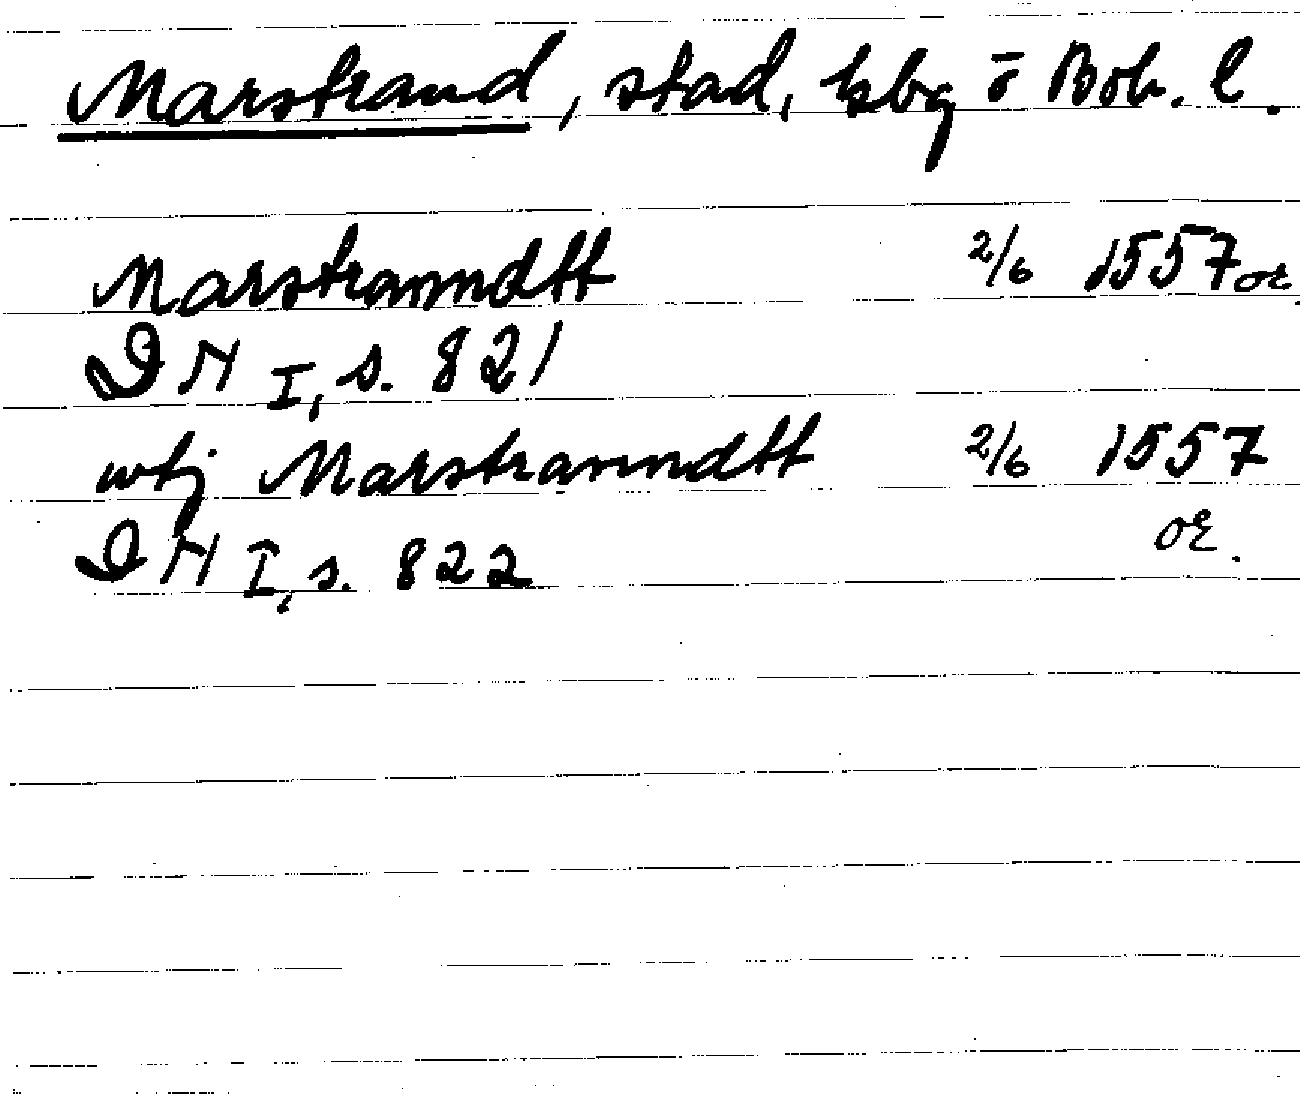 Marstrand, stad, kbg o Boh. l.
Marstranndtt 2/6 1557 or.
DN I, s. 821
wtj Marstranndtt 2/6 1557
DN I, s. 822 or.